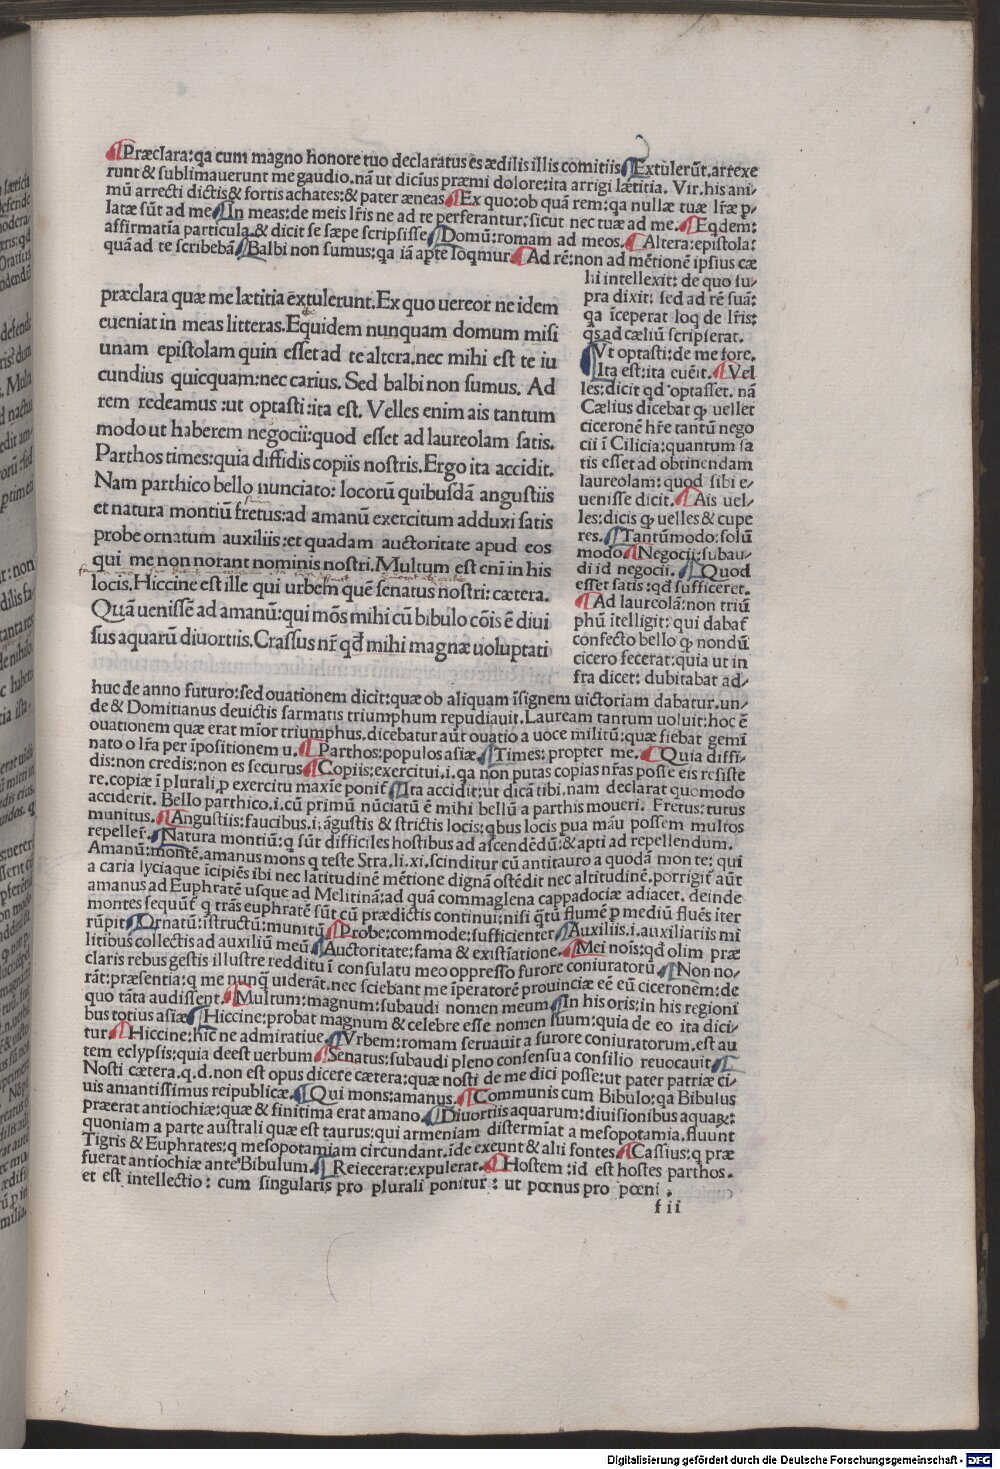 Præclara:qa cum magno honore tuo declaratus es ædilis illis comitiis Extulerūt.arrexe
runt & sublimauerunt me gaudio.nā ut dicius præmi dolore:ita arrigi lætitia. Vir.his ani/
mū arrecti dictis & fortis achates:& pater æneas Ex quo:ob quā rem:qa nullæ tuæ lr̄æ p/
latæ sūt ad me In meas:de meis lr̄is ne ad te perferantur:sicut nec tuæ ad me. Eqdem:
affirmatīa particula.& dicit se sæpe scripsisse Domū:romam ad meos. Altera:epistola:
quā ad te scribebā Balbi non sumus:qa iā apte loqmur Ad rē:non ad mētionē ipsius cæ
lii intellexit: de quo su/
pra dixit: sed ad rē suā:
qa īceperat loq de lr̄is:
qs ad cæliū scripserat.
Vt optasti:de me fore.
Ita est:ita euēit. Vel
les:dicit qd optasset. nā
Cælius dicebat ꝙ uellet
ciceronē hr̄e tantū nego
cii ī Cilicia:quantum sa
tis esset ad obtinendam
laureolam: quod sibi e/
uenisse dicit. Ais uel/
les:dicis ꝙ uelles & cupe
res. Tantūmodo:solū
modo Negocii:subau/
di id negocii. Quod
esset satis:qd sufficeret.
Ad laureolā:non triū
phū ītelligit: qui dabat᷑
confecto bello ꝙ nondū
cicero fecerat:quia ut in
fra dicet: dubitabat ad/
præclara quæ me lætitia extulerunt.Ex quo uereor ne idem
eueniat in meas litteras.Equidem nunquam domum misi
unam epistolam quin esset ad te altera.nec mihi est te iu
cundius quicquam:nec carius. Sed balbi non sumus. Ad
rem redeamus :ut optasti:ita est. Velles enim ais tantum
modo ut haberem negocii:quod esset ad laureolam satis.
Parthos times:quia diffidis copiis nostris.Ergo ita accidit.
Nam parthico bello nunciato: locorū quibusdā angustiis
et natura montiū fretus:ad amanū exercitum adduxi satis
probe ornatum auxiliis:et quadam auctoritate apud eos
qui me non norant nominis nostri.Multum est enī in his
locis.Hiccine est ille qui urbem quē senatus nostri: cætera.
Quā uenissē ad amanū:qui mōs mihi cū bibulo cōis ē diui
sus aquarū diuortiis.Crassus nr̄ qd mihi magnæ uoluptati
huc de anno futuro:sed ouationem dicit:quæ ob aliquam īsignem uictoriam dabatur.un/
de & Domitianus deuictis sarmatis triumphum repudiauit.Lauream tantum uoluit:hoc ē
ouationem quæ erat mīor triumphus.dicebatur aūt ouatio a uoce militū:quæ fiebat gemī
nato o lr̄a per īpositionem u. Parthos:populos asiæ Times: propter me. Quia diffi/
dis:non credis:non es securus Copiis:exercitui.i.qa non putas copias nr̄as posse eis resiste
re.copiæ ī plurali p exercitu maxīe ponit᷑ Ita accidit:ut dicā tibi.nam declarat quomodo
acciderit. Bello parthico.i.cū primū nūciatū ē mihi bellū a parthis moueri. Fretus:tutus
munitus. Angustiis:faucibus.i.āgustis & strictis locis:qbus locis pua māu possem multos
repellef. Natura montiū:q sūt difficiles hostibus ad ascendēdū:& apti ad repellendum.
Amanū:montē.amanus mons q teste Stra.li.xi.scinditur cū antitauro a quodā mon te: qui
a caria lyciaque īcipiēs ibi nec latitudinē mētione dignā ostēdit nec altitudinē.porrigit᷑ aūt
amanus ad Euphratē usque ad Melitinā:ad quā commaglena cappadociæ adiacet. deinde
montes sequūt᷑ q trās euphratē sūt cū prædictis continui:nisi q̄tū flumē p mediū fluēs iter
rūpit Ornatū:istructū:munitū Probe:commode:sufficienter Auxiliis.i.auxiliariis mi
litibus collectis ad auxiliū meū Auctoritate:fama & existīatione. Mei noīs:qd olim præ
claris rebus gestis illustre redditu ī consulatu meo oppresso furore coniuratorū. Non no/
rāt:præsentia:q me nunq̄ uiderāt.nec sciebant me īperatorē prouinciæ eē eū ciceronem:de
quo tāta audissent. Multum:magnum:subaudi nomen meum In his oris:in his regioni
bus totius asiæ Hiccine:probat magnum & celebre esse nomen suum:quia de eo ita dici/
tur Hiccine:hic ne admiratiue. Vrbem:romam seruauit a furore coniuratorum.est au
tem eclypsis:quia deest uerbum Senatus:subaudi pleno consensu a consilio reuocauit
Nosti cætera.q.d.non est opus dicere cætera:quæ nosti de me dici posse:ut pater patriæ ci/
uis amantissimus reipublicæ. Qui mons:amanus. Communis cum Bibulo:qa Bibulus
præerat antiochiæ:quæ & finitima erat amano. Diuortiis aquarum:diuisionibus aquaꝝ:
quoniam a parte australi quæ est taurus:qui armeniam distermīat a mesopotamia.fluunt
Tigris & Euphrates:q mesopotamiam circundant.īde exeunt & alti fontes. Cassius:q præ
fuerat antiochiæ ante Bibulum. Reiecerat:expulerat. Hostem :id est hostes parthos.
et est intellectio: cum singularis pro plurali ponitur: ut pœnus pro pœni.
f ii
Digitalisierung gefördert durch die Deutsche Forschungsgemeinschaft - DFG